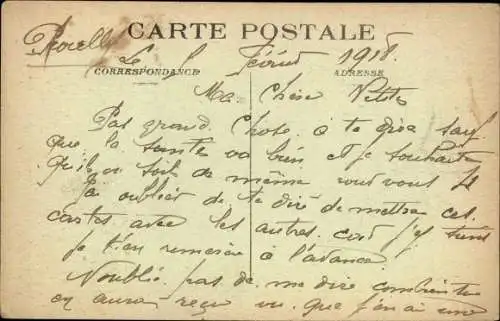 CARTE POSTALE
Le 5 Février 1918
CORRESPONDANCE ADRESSE
Ma Chère Petite
Pas grand Chose a te dire sauf
que la sante va bien et je souhaite
qu'il en soit de même vout vous Je
J'ai oublier de te dire de mettre ces
cartes avec les autres cart j'y tiens
je t'en remercie à l'avance
N'oublie pas de me dire combien tu
en auras reçu vu que j'en ai une